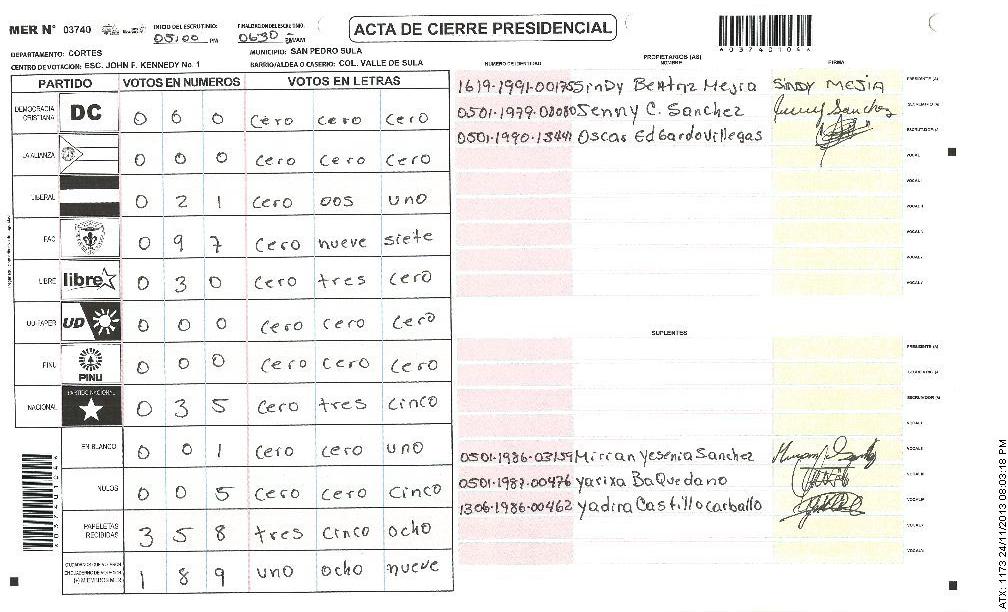 MER N° 03740 INICIO DEL ESCRUTINIO: 05:00 PM FINALIZACION DEL ESCRUTINIO: 0630 PM/AM
ACTA DE CIERRE PRESIDENCIAL
DEPARTAMENTO: CORTES MUNICIPIO: SAN PEDRO SULA
CENTRO DE VOTACION: ESC. JOHN F. KENNEDY No. 1 BARRIO/ALDEA O CASERIO: COL. VALLE DE SULA
PARTIDO VOTOS EN NUMEROS VOTOS EN LETRAS
DEMOCRACIA CRISTIANA DC 0 0 0 cero cero cero
LA ALIANZA 0 0 0 cero cero cero
LIBERAL 0 2 1 cero dos uno
PAC 0 9 7 cero nueve siete
LIBRE libre 0 3 0 cero tres cero
UD-FAPER UD 0 0 0 cero cero cero
PINU PINU 0 0 0 cero cero cero
NACIONAL PARTIDO NACIONAL 0 3 5 cero tres cinco
EN BLANCO 0 0 1 cero cero uno
NULOS 0 0 5 cero cero cinco
PAPELETAS RECIBIDAS 3 5 8 tres cinco ocho
1 8 9 uno ocho nueve
PROPIETARIOS (AS)
NUMERO DE IDENTIDAD NOMBRE FIRMA
1619-1991-00175 Sindy Beatriz Mejia SINDY MEJIA PRESIDENTE (A)
0501-1979-08080 Jenny C. Sanchez SECRETARIO (A)
0501-1990-13441 Oscar Edgardo Villegas ESCRUTADOR (A)
VOCAL I
SUPLENTES
PRESIDENTE (A)
SECRETARIO (A)
ESCRUTADOR (A)
0501-1986-03159 Mirian Yesenia Sanchez
0501-1987-00476 Yarixa BaQuedano
1306-1986-00462 Yadira Castillo carballo
ATX: 1173 24/11/2013 08:03:18 PM